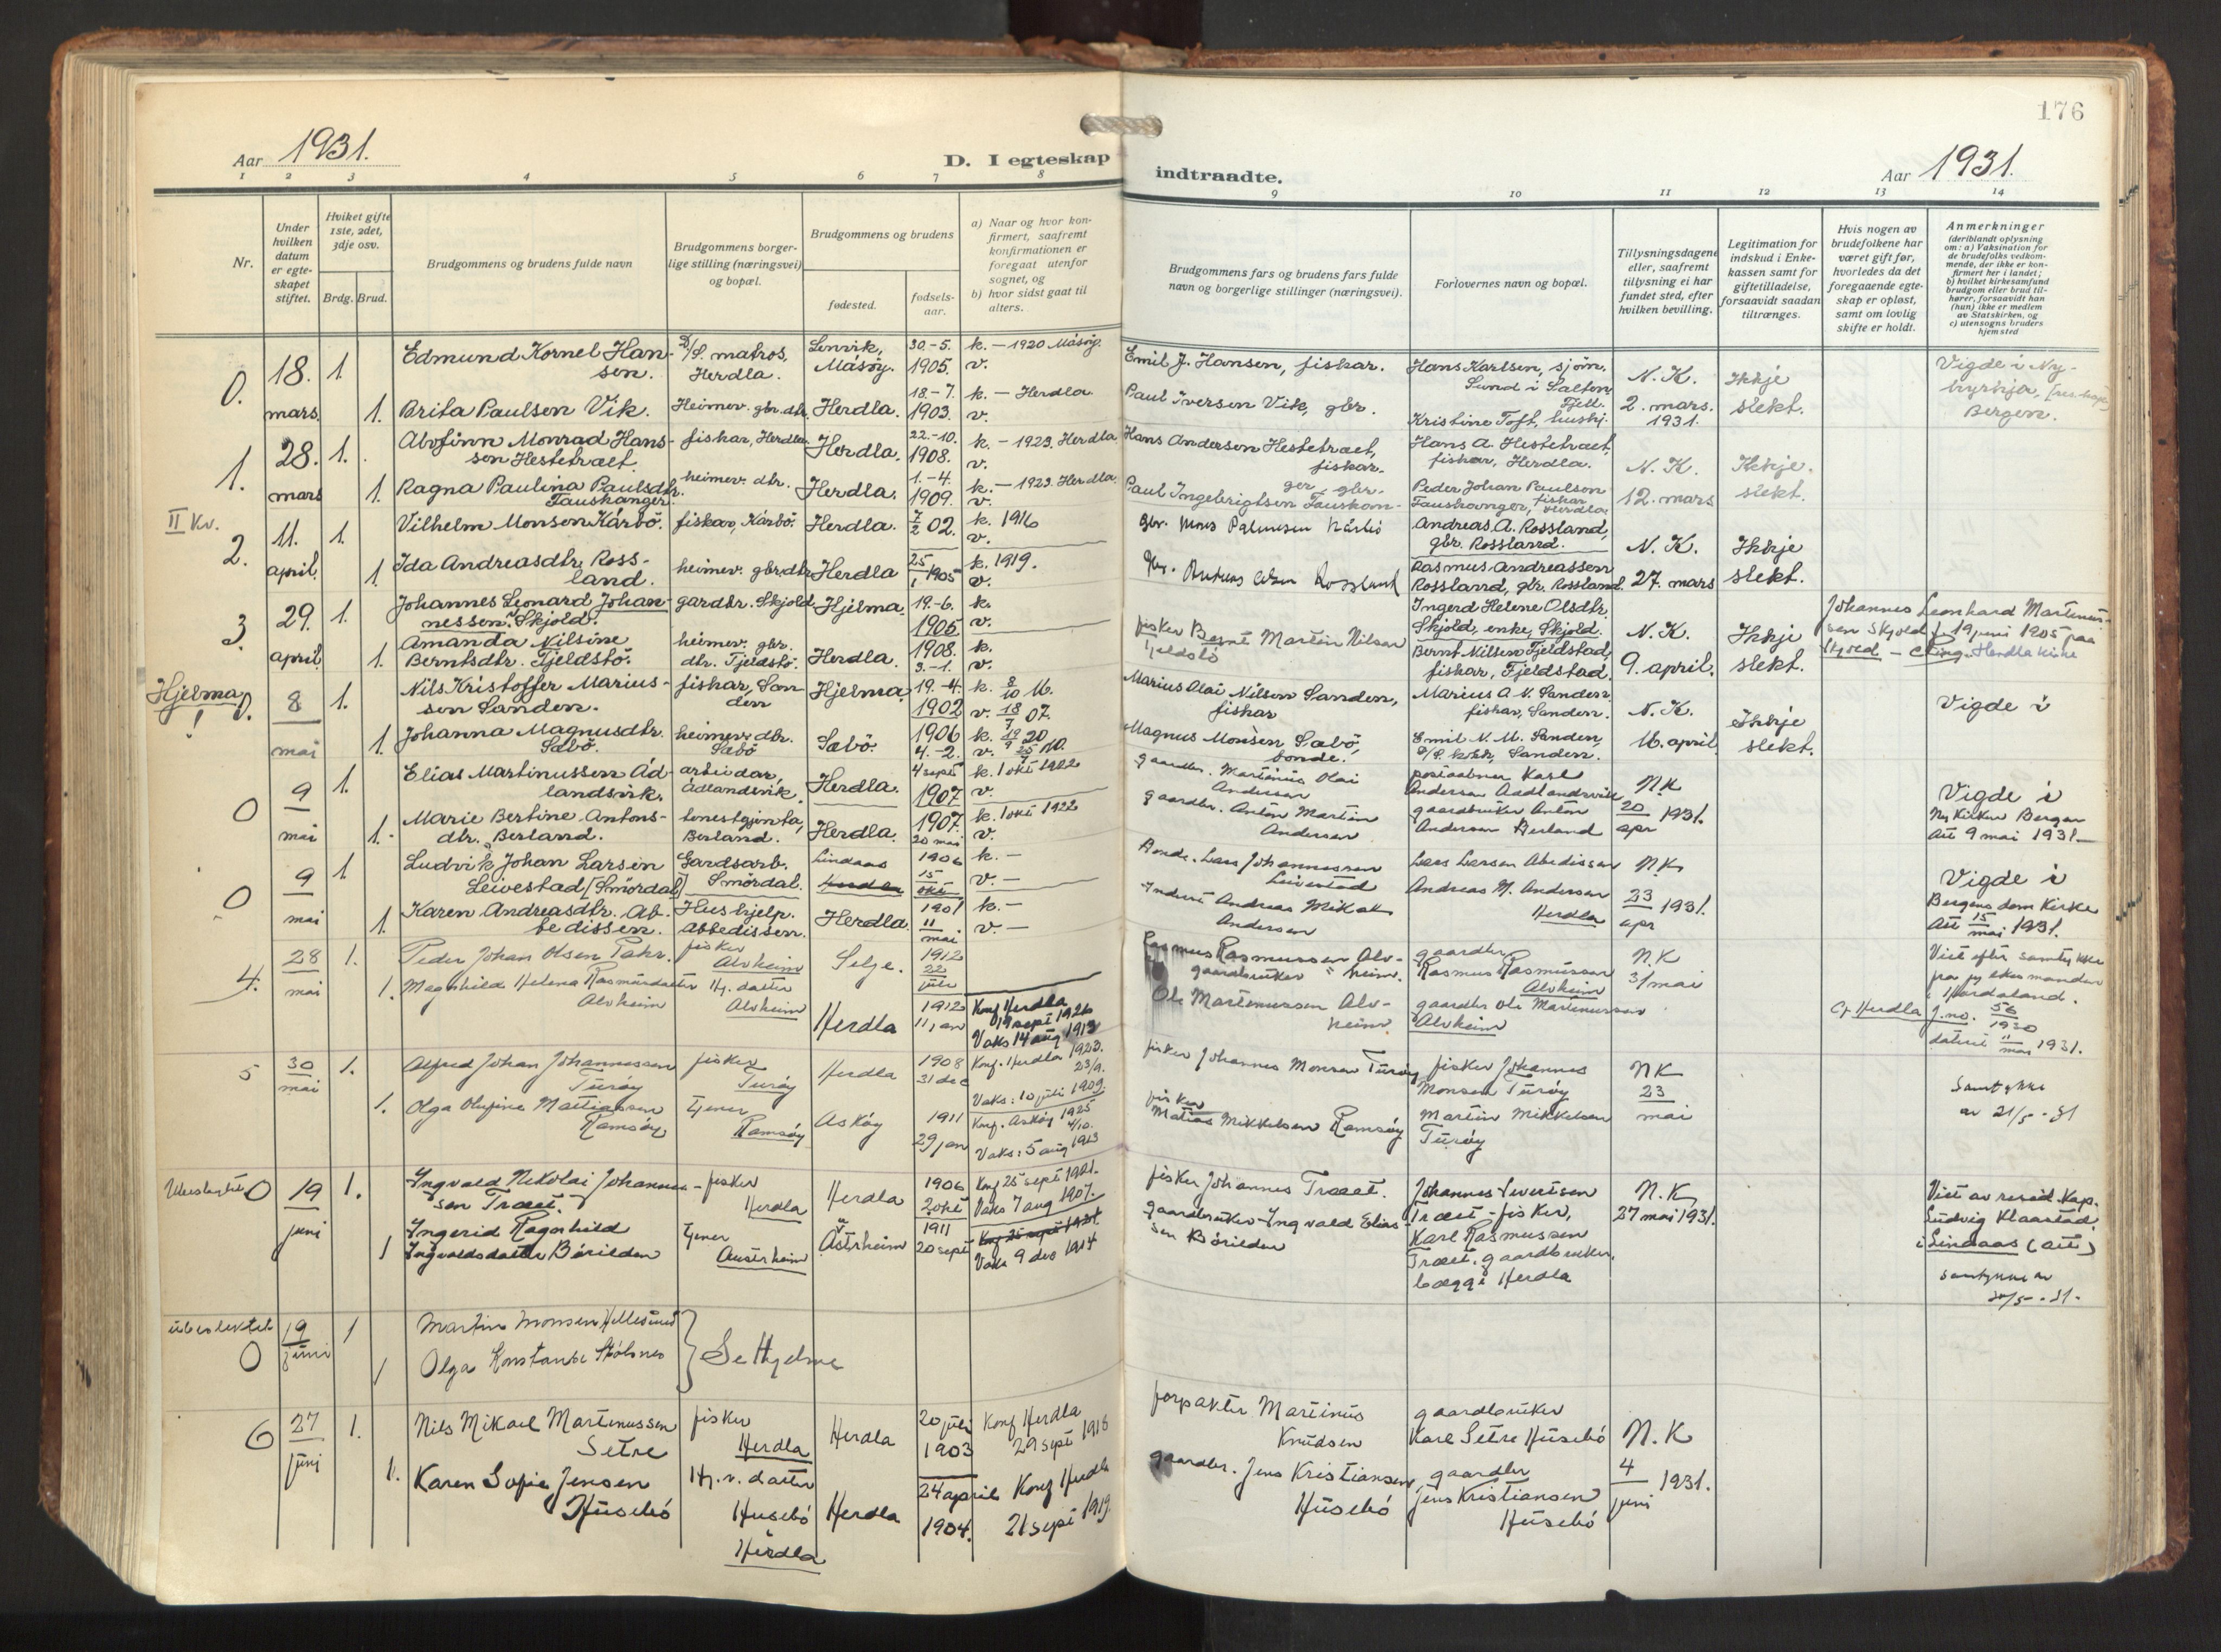 176
Aar 1931.
D. I egteskap indtraadte.
Aar 1931.
1 2 3 4 5 6 7 8 9 10 11 12 13 14
Nr.
Under hvilken datum er egte-skapet stiftet.
Hviket gifte 1ste, 2det, 3dje osv.
Brdg. Brud.
Brudgommens og brudens fulde navn
Brudgommens borger-lige stilling (næringsvei) og bopæl.
Brudgommens og brudens
fødested.
fødsels-aar.
a) Naar og hvor kon-firmert, saafremt konfirmationen er foregaat utenfor sognet, og
b) hvor sidst gaat til alters.
Brudgommens fars og brudens fars fulde navn og borgerlige stillinger (næringsvei).
Forlovernes navn og bopæl.
Tillysningsdagene eller, saafremt tillysning ei har fundet sted, efter hvilken bevilling.
Legitimation for indskud i Enke-kassen samt for giftetilladelse, forsaavidt saadan tiltrænges.
Hvis nogen av brudefolkene har været gift før, hvorledes da det foregaaende egte-skap er opløst, samt om lovlig skifte er holdt.
Anmerkninger
(deriblandt oplysning om: a) Vaksination for de brudefolks vedkom-mende, der ikke er kon-firmert her i landet; b) hvilket kirkesamfund brudgom eller brud til-hører, forsaavidt han (hun) ikke er medlem av Statskirken, og c) utensogns bruders hjemsted
0. 18. mars 1. Edmund Kornel Han-sen. D/S. matros, Herdla. Lenvik, Måsøy. 30.-5. 1905. k. - 1920 Måsøy. v. Emil J. Hansen, fiskar. Hans Karlsen, sjøm. Sund i Salten Fjell. N. K. Ikkje Vigde i Ny-kyrkja, Bergen.
1. Brita Paulsen Vik. Heimev. gbr. dtr. Herdla. 18.-7. 1903. k. - Herdla. v. Paul Iversen Vik, gbr. Kristine Toft, huskj. 2. mars. 1931. slekt.
1. 28. mars 1. Alvfinn Monrad Hans-sen Hestetræet. fiskar, Herdla. Herdla. 22.-10. 1908. k. - 1923. Herdla. v. Hans Andersen Hestetræet, fiskar. Hans A. Hestetræet, fiskar, Herdla. N. K. Ikkje.
1. Ragna Paulina Paulsdtr. Tauskanger. heimev. dtr. Herdla. 1.-4. 1909. k. - 1923. Herdla. v. Paul Ingebrigtsen Tauskan-ger, gbr. Peder Johan Paulson Tauskanger, fiskar Herdla 12. mars slekt.
II Kv.
2. 11. april 1. Vilhelm Monsen Kårbø. fiskar, Kårbø. Herdla. 7/2 02. k. 1916 v. gbr. Mons Kårbø Andreas A. Rossland, gbr. Rossland. N. K. Ikkje
1. Ida Andreasdtr. Ross-land. heimev. gbr. dtr. Herdla 25/1 1905 k. 1919. v. gbr. Andreas Rossland Rasmus Andreassen Rossland, gbr. Rossland 27. mars slekt.
3. 29. april 1. Johannes Leonard Johan-nessen. Skjold. gardbr. Skjold Hjelma. 19.-6. 1905 k. v. Ingerd Helene Olsdtr. Skjold, enke, Skjold. N. K. Ikkje Johannes Leonhard Martinus-sen Skjold f. 19 juni 1905 paa Skjold - Herdla kirke
1. Amanda Nilsine Berntsdtr. Fjeldstø. heimev. gbr. dtr. Fjeldstø. Herdla. 1908. 3.-1. k. v. fisker Bernt Martin Nilsen Fjeldstø Bernt Nilsen Fjeldstad, fiskar, Fjeldstad. 9. april. slekt.
Hjelma! 0. 8 mai 1. Nils Kristoffer Marius-sen Sanden. fiskar, San-den Hjelma 19.-4. 1902 k. 8/10 16. v. 18/7 07. Marius Alai Nilsen Sanden, fiskar Marius A. N. Sanden, fiskar, Sanden. N. K. Ikkje Vigde i
1. Johanna Magnusdtr. Sæbø. heimev. dtr. Sæbø Sæbø. 1906 4.-2. k. 20 v. 10. Magnus Monsen Sæbø, bonde. Emil N. M. Sanden, Sanden. 16. april slekt.
0 9 mai 1. Elias Martinussen Åd-landsvik. arbeidar, Ådlandsvik. Herdla. 4 sept 1907 k. 1 okt 1922 v. gaardbr. Martinus Olai Andersen postaabner Karl Andersen Aadlandsvik N.K Vigde i Ny Kirken Bergen
1. Marie Bertine Antons-dtr. Berland. tenestgjenta, Berland. Herdla. 1907. 20 mai k. 1 okt 1922 v. gaardbr. Anton Martin Andersen gaardbruker Anton Andersen Berland 20/apr 1931. Att 9 mai 1931.
0 9 mai 1 Ludvik Johan Larsen Leivestad [Smørdal] Gardsarb. Smørdal. Lindaas 1906 15 okt k. - v. - Bonde. Lars Johannessen Leivestad Lars Larsen Abedissen N.K Vigde i Bergens dom Kirke
1. Karen Andreasdtr. Ab-bedissen. Hushjelp. Abbedissen. Herdla. 1901 11 mai k. - v. - Inderst Andreas Mikal Andersen Andreas M. Andersen Herdla 23/apr 1931. Att 15 mai 1931.
4. 28 mai 1. Peder Johan Olsen Tahr. fisker Alvheim Selje. 1912 22 juli Rasmus Rasmussen Alv-heim. gaardbruker gaardbr Rasmus Rasmussen Alvheim N.K 31/mai Viet efter samtykke fra fylkesmanden i Hordaland.
1. Magnhild Helena Rasmusdatter Alvheim Hj. datter Alvheim Herdla 1912 11 jan Konf Herdla 19 sept 1926 Vaks 14 aug 1913 Ole Martinussen Alv-heim gaardbr Ole Martinussen Alvheim Cf Herdla J.no. 56/1930 datert 11 mai 1931.
5 30 mai 1. Alfred Johan Johannessen Turøy fisker Turøy Herdla 1908 31 dec Konf. Herdla 1923. 23/9. Vaks: 10 juli 1909. fisker Johannes Monsen Turøy fisker Johannes Monsen Turøy NK 23 mai Samtykke av 21/5 - 31
1. Olga Olufine Matiassen Ramsøy tjener Ramsøy Askøy 1911 29 jan Konf. Askøy 1925 4/10. Vaks: 5 aug 1913 fisker Matias Mikkelsen Ramsøy Martin Mikkelsen Turøy
0 19 juni 1. Ingvald Nikolai Johannes-sen Træet. fisker Herdla Herdla 1906 2 okt Konf 25 sept 1921. Vaks 7 aug 1907. fisker Johannes Træet. Johannes Sivertsen Træet - fisker, N.K 27 mai 1931. Viet av resid. Kap. Ludvig Klaastad i Lindaas (att)
1 Ingerid Ragnhild Ingvaldsdatter Børilden tjener Austrheim Åstrheim 1911 20 sept Konf 25 sept 1921 Vaks 9 des 1914 gaardbruker Ingvald Elias-sen Børilden Karl Rasmussen Træet. gaardbruker, begge Herdla samtykke av
19 juni 1 Martin Monsen Hellesund
0 1 Olga Konstanse Stølsnes } Se Hjelme
6 27 juni 1. Nils Mikael Martinussen Setre fisker Herdla Herdla 20 juli 1903 Konf Herdla 29 sept 1918 forpakter Martinus Knudsen gaardbruker Karl Setre Husebø N.K
1. Karen Sofie Jensen Husebø Hj. v. datter Husebø Herdla Herdla 24 april 1904. Konf Herdla 21 sept 1919. gaardbr. Jens Kristiansen Husebø gaardbr Jens Kristiansen Husebø 4/juni 1931.